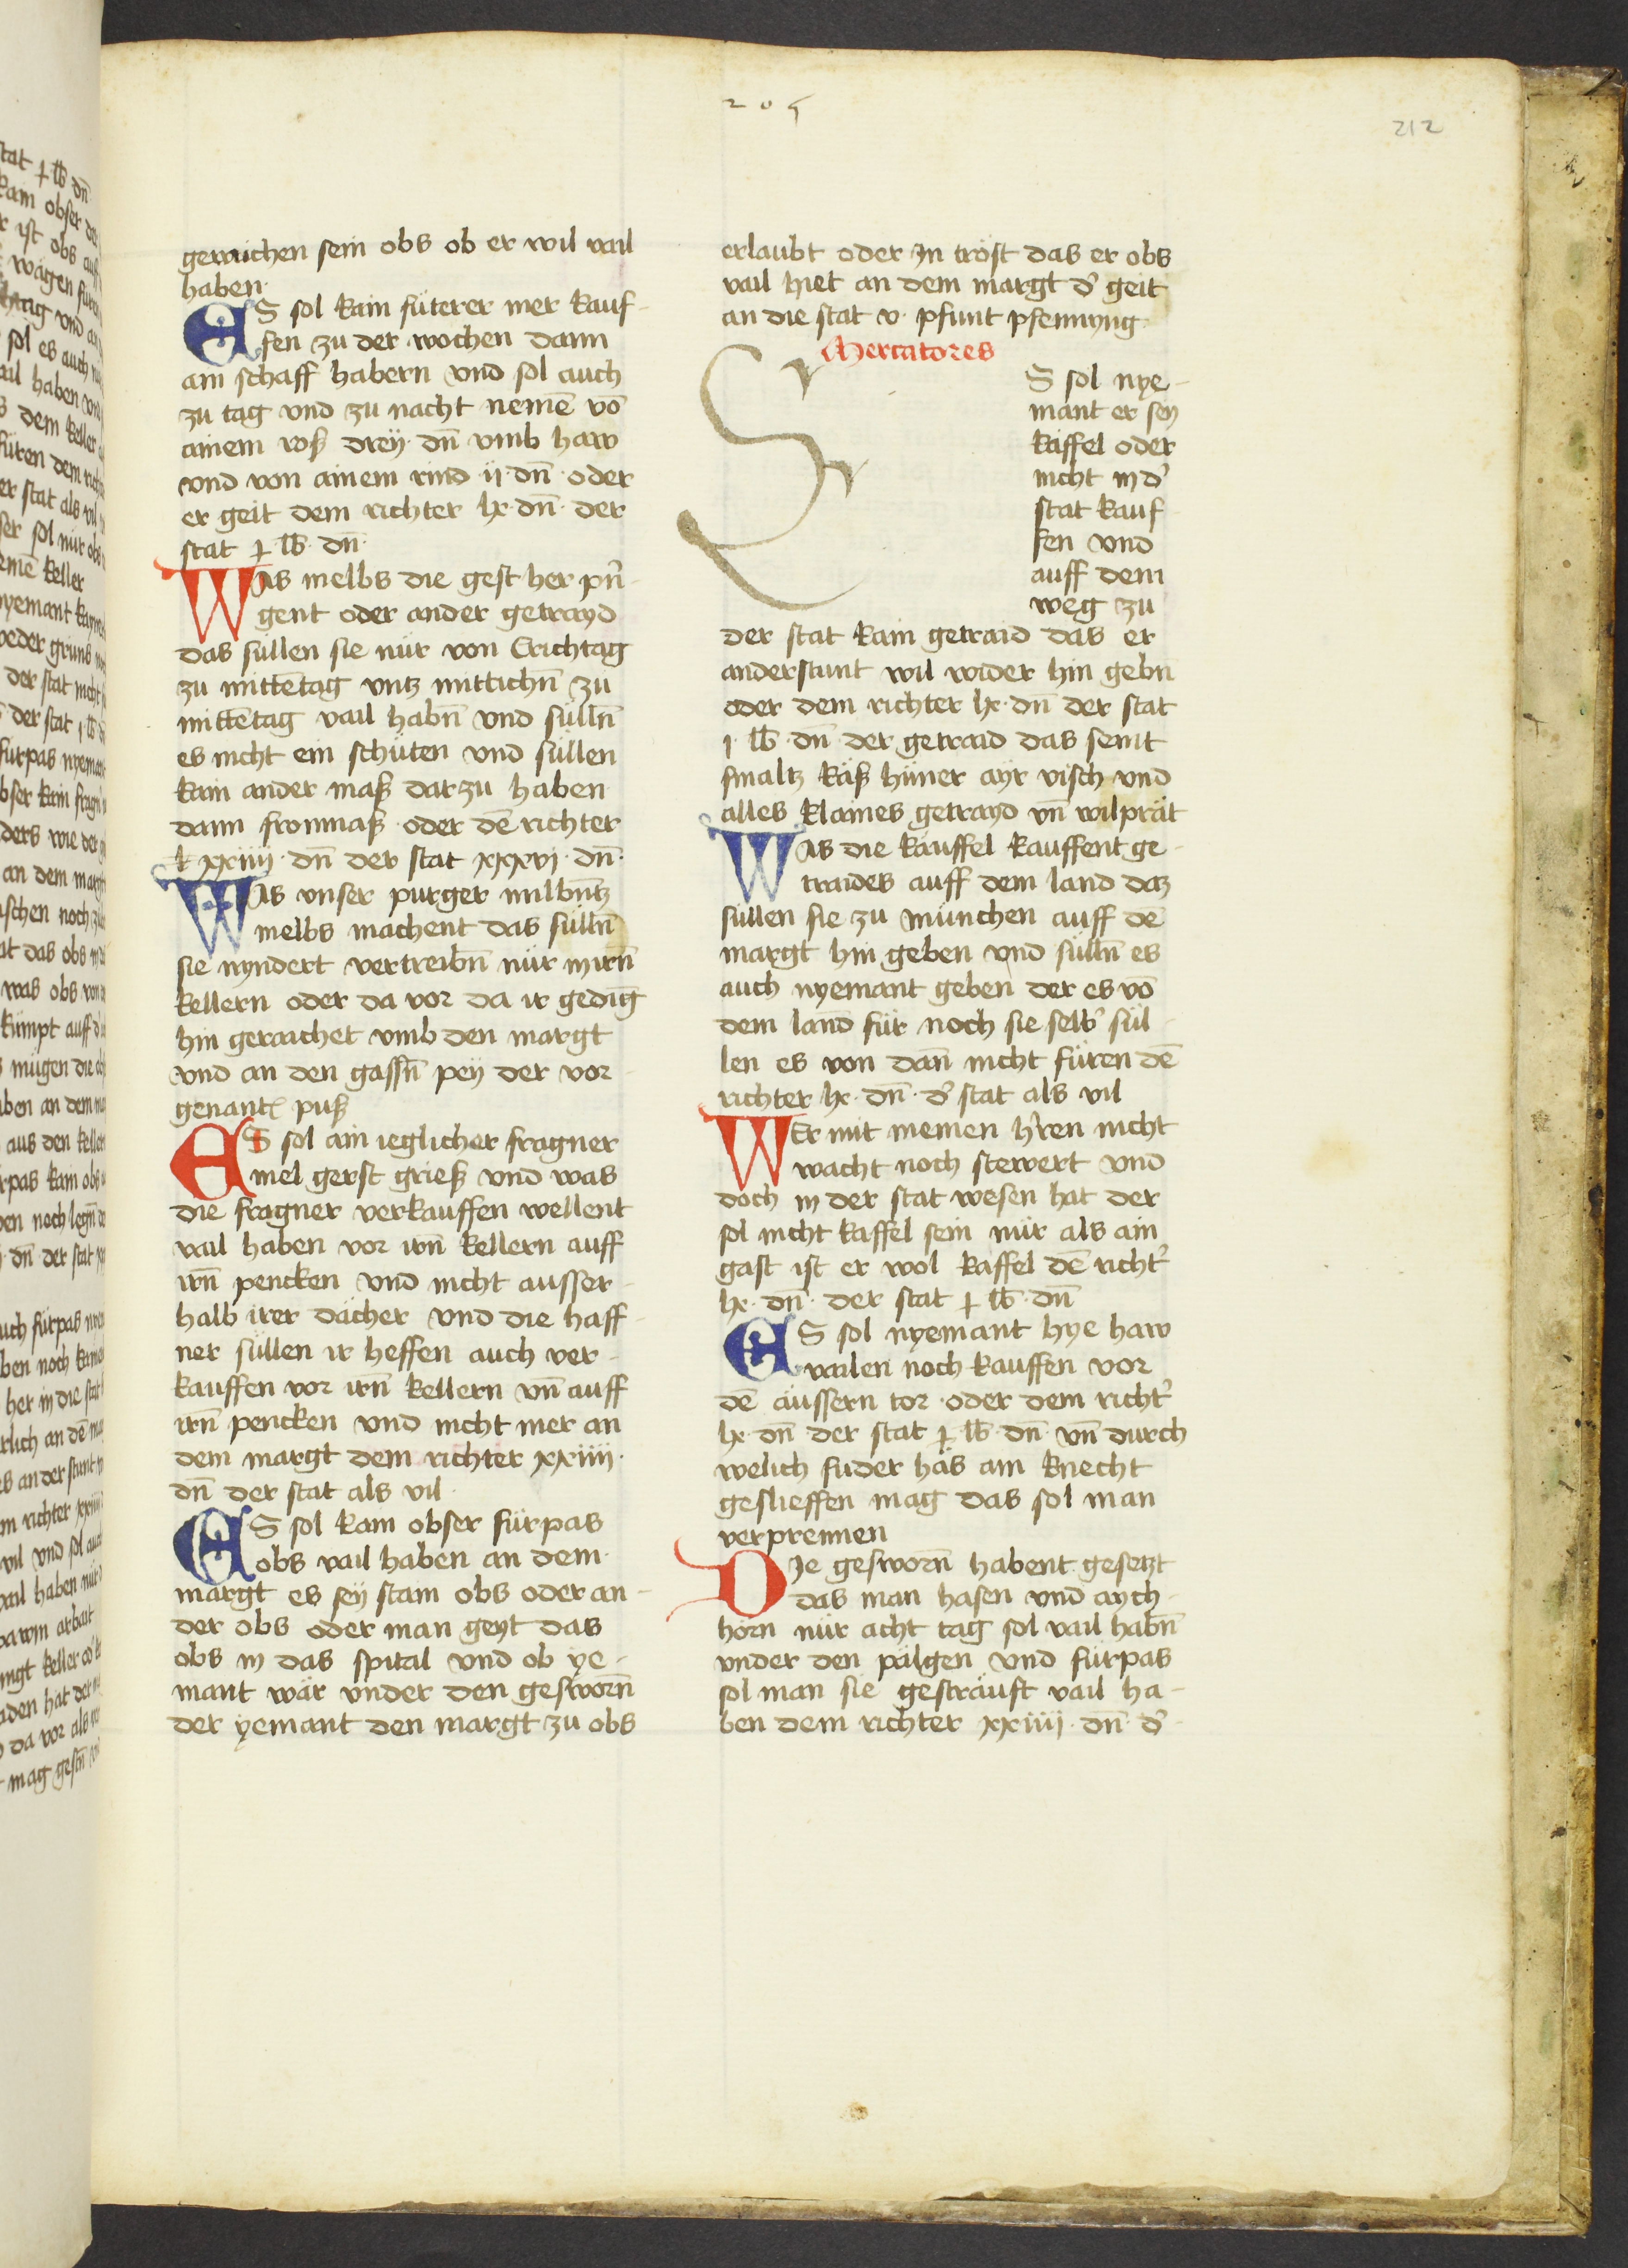 205
212
geraichen sein obs ob er wil vail
haben·
ES sol kain füterer mer kauf-
fen zu der wochen dann
ain schaff habern vnd sol auch
zu tag vnd zu nacht nemē vō
ainem roß dreÿ· dn̄ vmb haw
vnd von ainem rind ·ij· dn̄· oder
er geit dem richter lx· dn̄· der
stat ꝑ lb̄· dn̄·
WAs melbs die gest her prin̄-
gent oder ander getrayd
das süllen sie nür von Erichtag
zu mittētag vntz mittichn̄ zu
mittētag vail habn̄ vnd sülln̄
es nicht ein schüten vnd süllen
kain ander maß dar zu haben
dann fronmaß· oder dē richter
lxxiiij· dn̄ der stat xxxvj· dn̄·
WAs vnser purger milbn̄tz
melbs machent das sülln̄
sie nyndert vertreibn̄ nür in irn̄
kellern oder da vor da ir gedīg
hin geraichet vmb den margt
vnd an den gassn̄ peÿ der vor-
genantē puß
ES sol ain ieglicher fragner
mel gerst grieß vnd was
die fragner verkauffen wellent
vail haben vor irn̄ kellern auff
irn̄ pencken vnd nicht ausser-
halb irer dächer vnd die haff-
ner süllen ir heffen auch ver-
kauffen vor irn̄ kellern vn̄ auff
irn̄ pencken vnd nicht mer an
dem margt dem richter xxiiij·
dn̄ der stat als vil·
ES sol kain obser fürpas
obs vail haben an dem
margt es seÿ stam obs oder an-
der obs oder man geyt das
obs in das spital vnd ob ye-
mant wär vnder den gesworn̄
der yemant den margt zu obs
erlaubt oder In tröst das er obs
vail hiet an dem margt d' geit
an die stat v· pfunt pfennyng·
Mercatores
ES sol nye-
mant er seÿ
käffel oder
nicht in d'
stat kauf-
fen vnd
auff dem
weg zu
der stat kain getraid das er
anderstunt wil wider hin gebn̄
oder dem richter lx· dn̄ der stat
j· lb̄· dn̄ der getraid das seint
smaltz käß hüner aÿr visch vnd
alles klaines getrayd vn̄ wilprät
WAs die käuffel kauffent ge-
traides auff dem land daz
süllen sie zu münchen auff dē
margt hin geben vnd sülln̄ es
auch nyemant geben der es vō
dem land für noch sie selb' sül-
len es von dan̄ nicht füren dē
richter lx· dn̄· d' stat als vil
WEr mit meinen h'ren nicht
wacht noch stewert vnd
doch in der stat wesen hat der
sol nicht kaffel sein nür als ain
gast ist er wol kaffel dē richt'
lx· dn̄· der stat ꝑ lb̄· dn̄
ES sol nyemant hye haw
vailen noch kauffen vor
dē äussern tor· oder dem richt'
lx· dn̄ der stat ꝑ lb̄· dn̄ vn̄ durch
welich fuder häs ain knecht
geslieffen mag das sol man
verprennen
DIe gesworn̄ habent gesetzt
das man hasen vnd aych-
horn nür acht tag sol vail habn̄
vnder den pälgen vnd fürpas
sol man sie gesträuft vail ha-
ben dem richter xxiiij· dn̄· d'